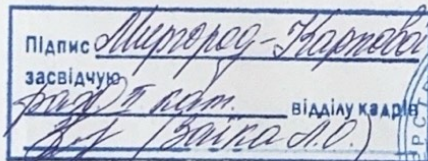 Підпис Миргород-Карпової
засвідчую
фах. І кат. відділу кадрів
(Заїка Л.О.)